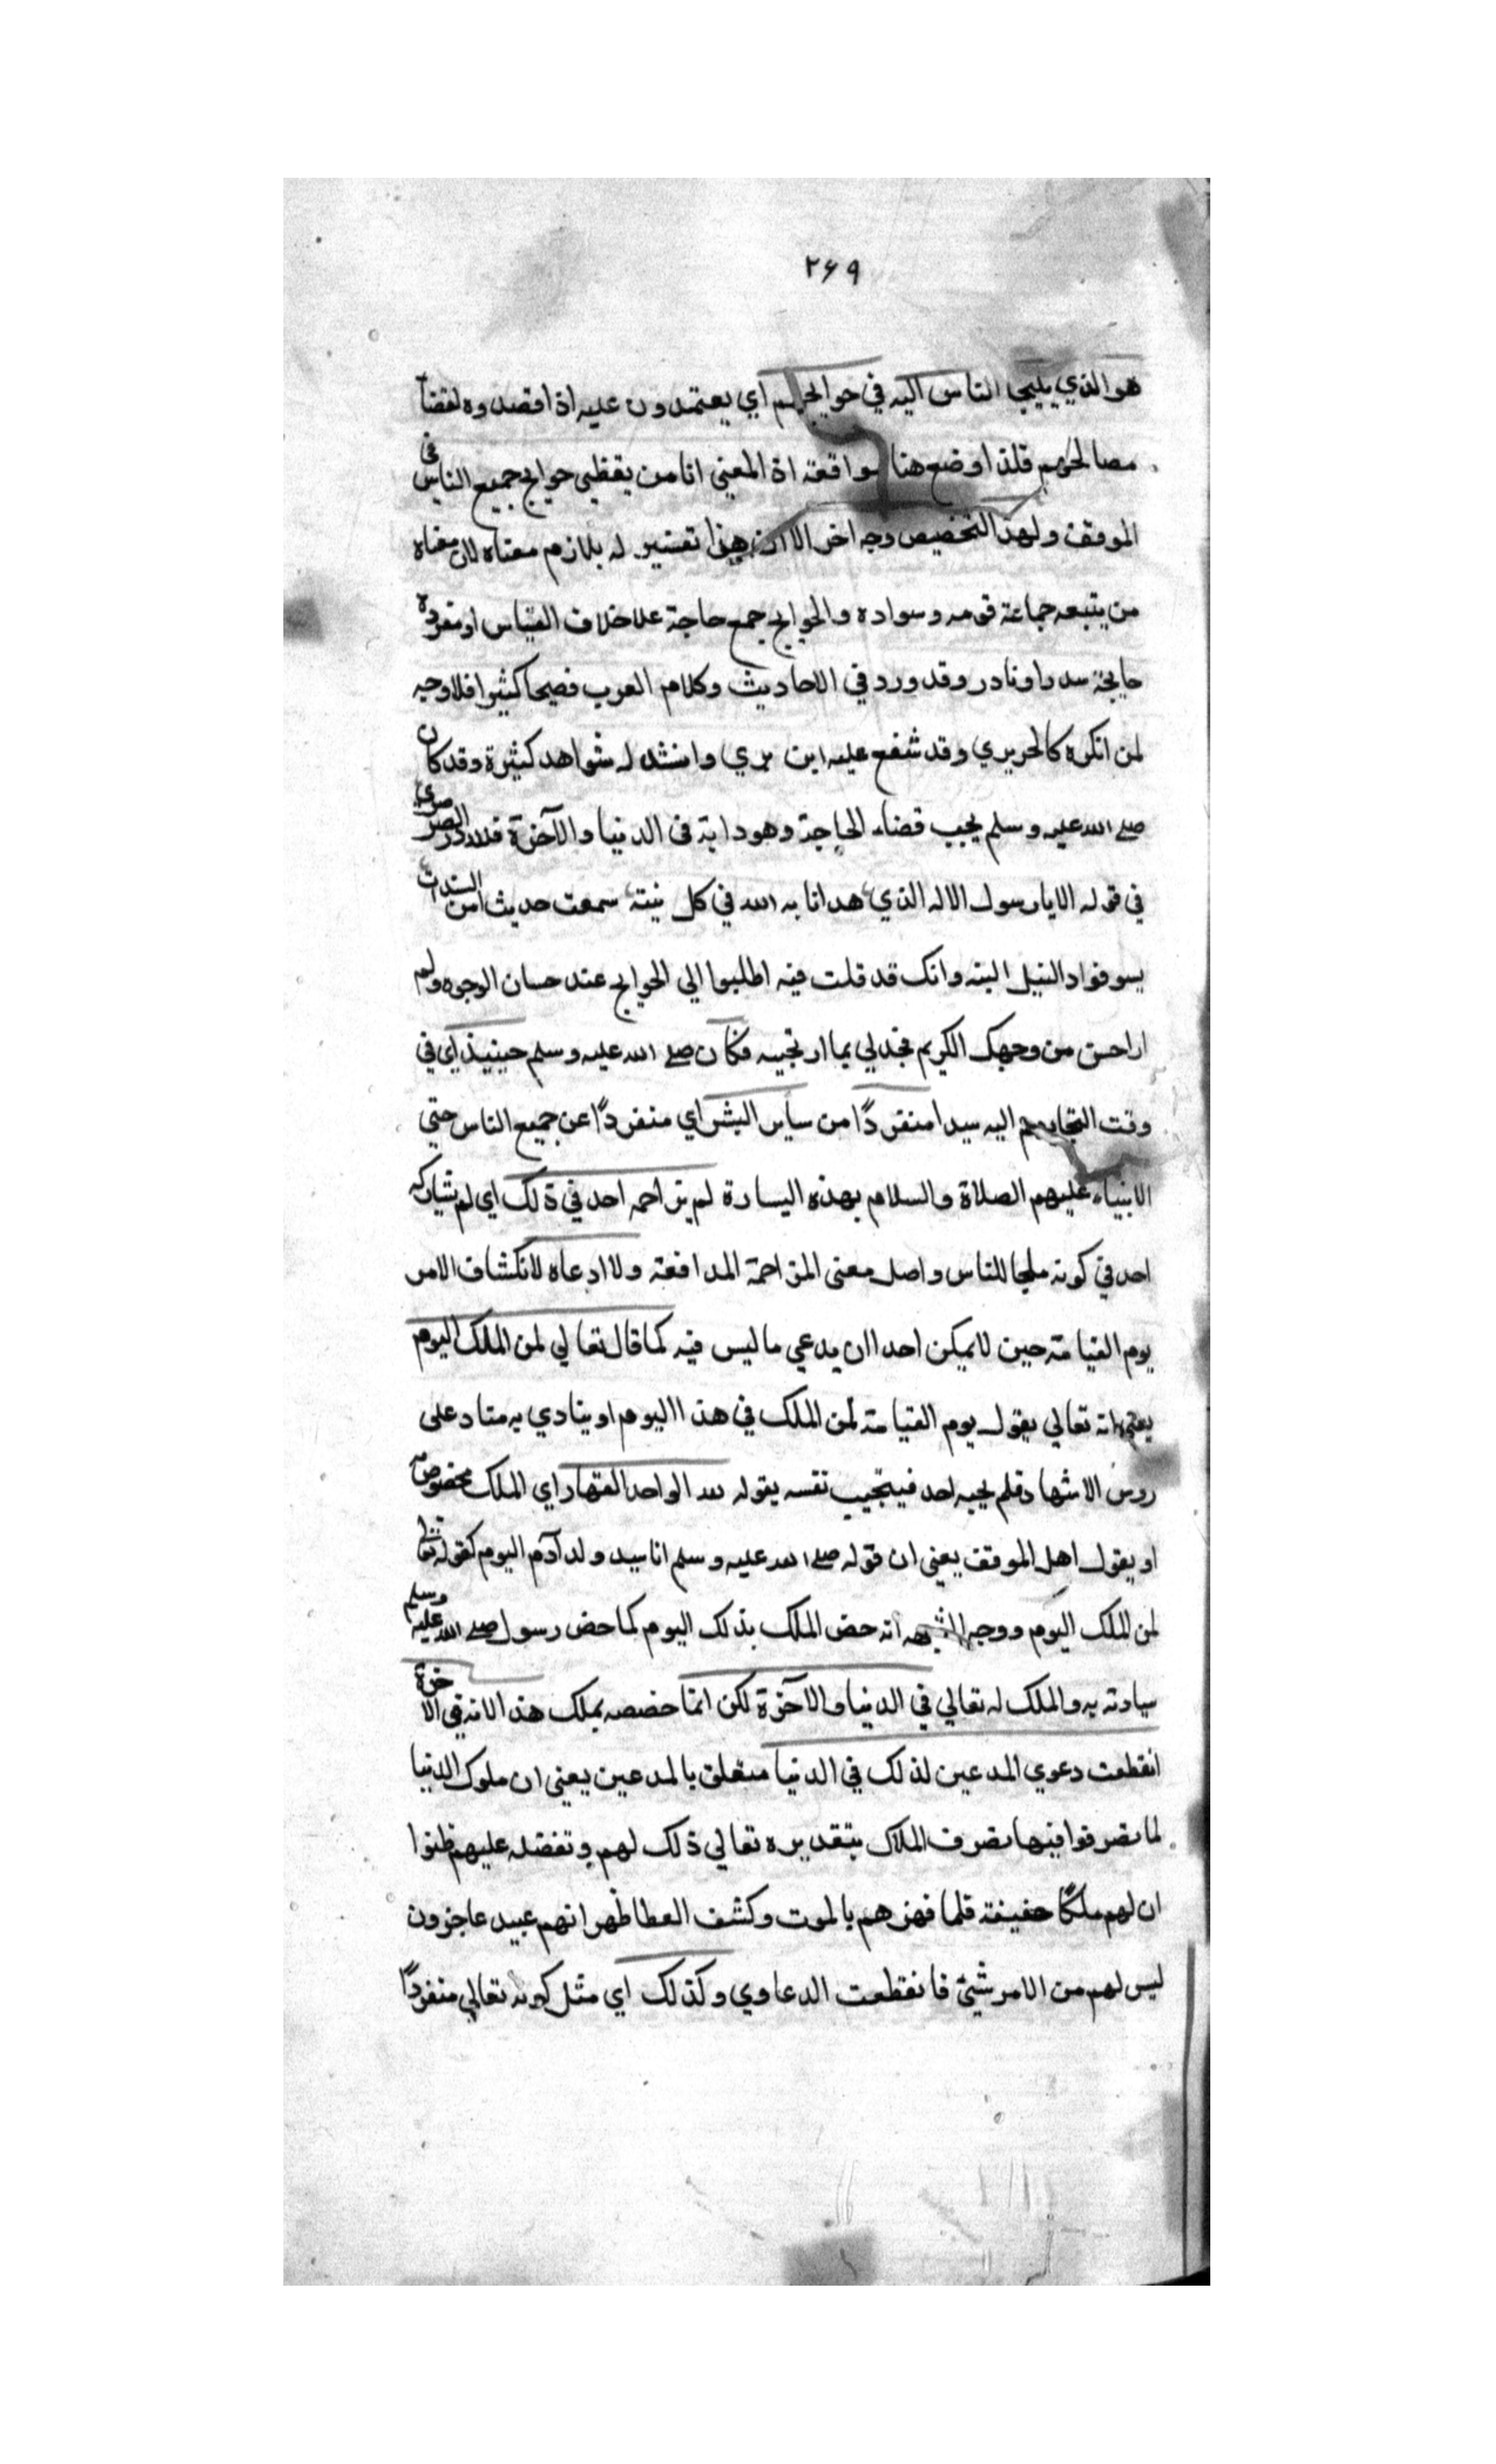 ٢٦٩
هو الذي يليجا الناس اليه في حوايجهم اي يعتمدون عليه اذا قصدوه لقضآ
مصالحهم فلذا وضع هنا اذ المعنى انا من يقظي حوايج جميع الناس في
الموقف ولهذا التخصيص وجه اخر الا ان هذا تفسير له بلازم معناه لان معناه
من يتبعه جماعة قومه وسواده والحوايج جمع حاجة علا خلاف القياس او مفرده
حايجة او نادر وقد ورد في الاحاديث وكلام العرب فصيحا كثيرا فلا وجه
لمن انكره كالحريري وقد شفع عليه ابن بري وانشد له شواهد كثيرة وقد كان
صلے الله عليه وسلم يحب قضاء الحاجة وهو دابه فى الدنيا والآخرة فلله در الصرصري
في قوله الا يا رسول الاله الذي هدانا به الله في كل تيه سمعت حديث من
فواد النبيل النبيه وانك قد قلت فيه اطلبوا الي الحوايج عند حسان الوجوه ولم
ار احسن من وجهك الكريم فجد لي بما ارتجيه فكان صلے الله عليه وسلم حينيذ اي في
وقت التجايهم اليه سيدا منفردًا من سآير البشر اي منفردًا عن جميع الناس حتي
الانبياء عليهم الصلاة والسلام بهذه السيادة لم يزاحمه احد في ذلك اي لم يشاركه
احد في كونه ملجا للناس واصل معنى المزاحمة المدافعة ولا ادعاه لانكشاف الامر
يوم القيامة حين لا يمكن احدا ان يدعي ما ليس فيه كما قال تعالي لمن الملك اليوم
يعني انه تعالي يقول يوم القيامة لمن الملك في هذا اليوم او ينادي به مناد على
روس الاشهاد فلم يجبه احد فيجيب نفسه بقوله لله الواحد القهار اي الملك مخصوص
او يقول اهل الموقف يعنى ان قوله صلے الله عليه وسلم انا سيد ولد آدم اليوم كقوله تعالي
لمن الملك اليوم ووجه الشبه انه خص الملك بذلك اليوم كما خص رسول صلے الله عليه وسلم
سيادته به والملك له تعالي في الدنيا والآخرة لكن انما خصصه بملك هذا لانه في الاخرة
انقطعت دعوي المدعين لذلك في الدنيا متعلق بالمدعين يعنى ان ملوك الدنيا
لما تصرفوا فيها تصرف الملاك بتقديره تعالي ذلك لهم وتفضله عليهم ظنوا
ان لهم ملكًا حقيقة فلما قهرهم بالموت وكشف الغطا ظهر انهم عبيد عاجزون
ليس لهم من الامر شيئ فانقطعت الدعاوي وكذلك اي مثل كونه تعالي منفردًا